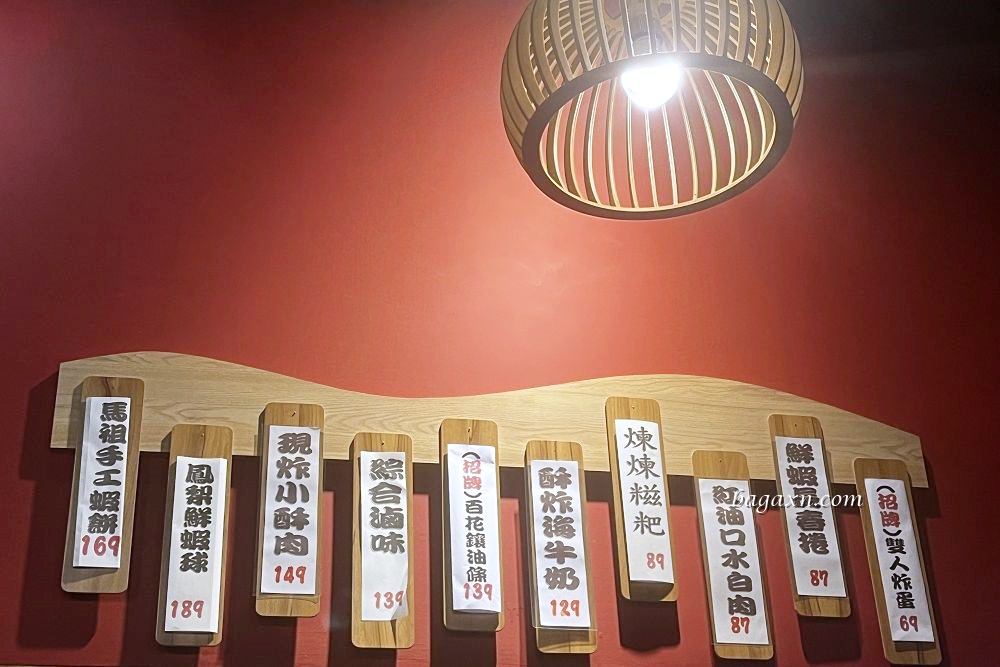 馬祖手工蝦餅
169
鳳梨鮮蝦球
189
現炸小酥肉
149
綜合滷味
139
(招牌)百花鑲油條
139
酥炸海牛奶
129
煉煉糍粑
89
紅油口水白肉
87
鮮蝦春捲
87
(招牌)雙人炸蛋
69
bagaxn.com